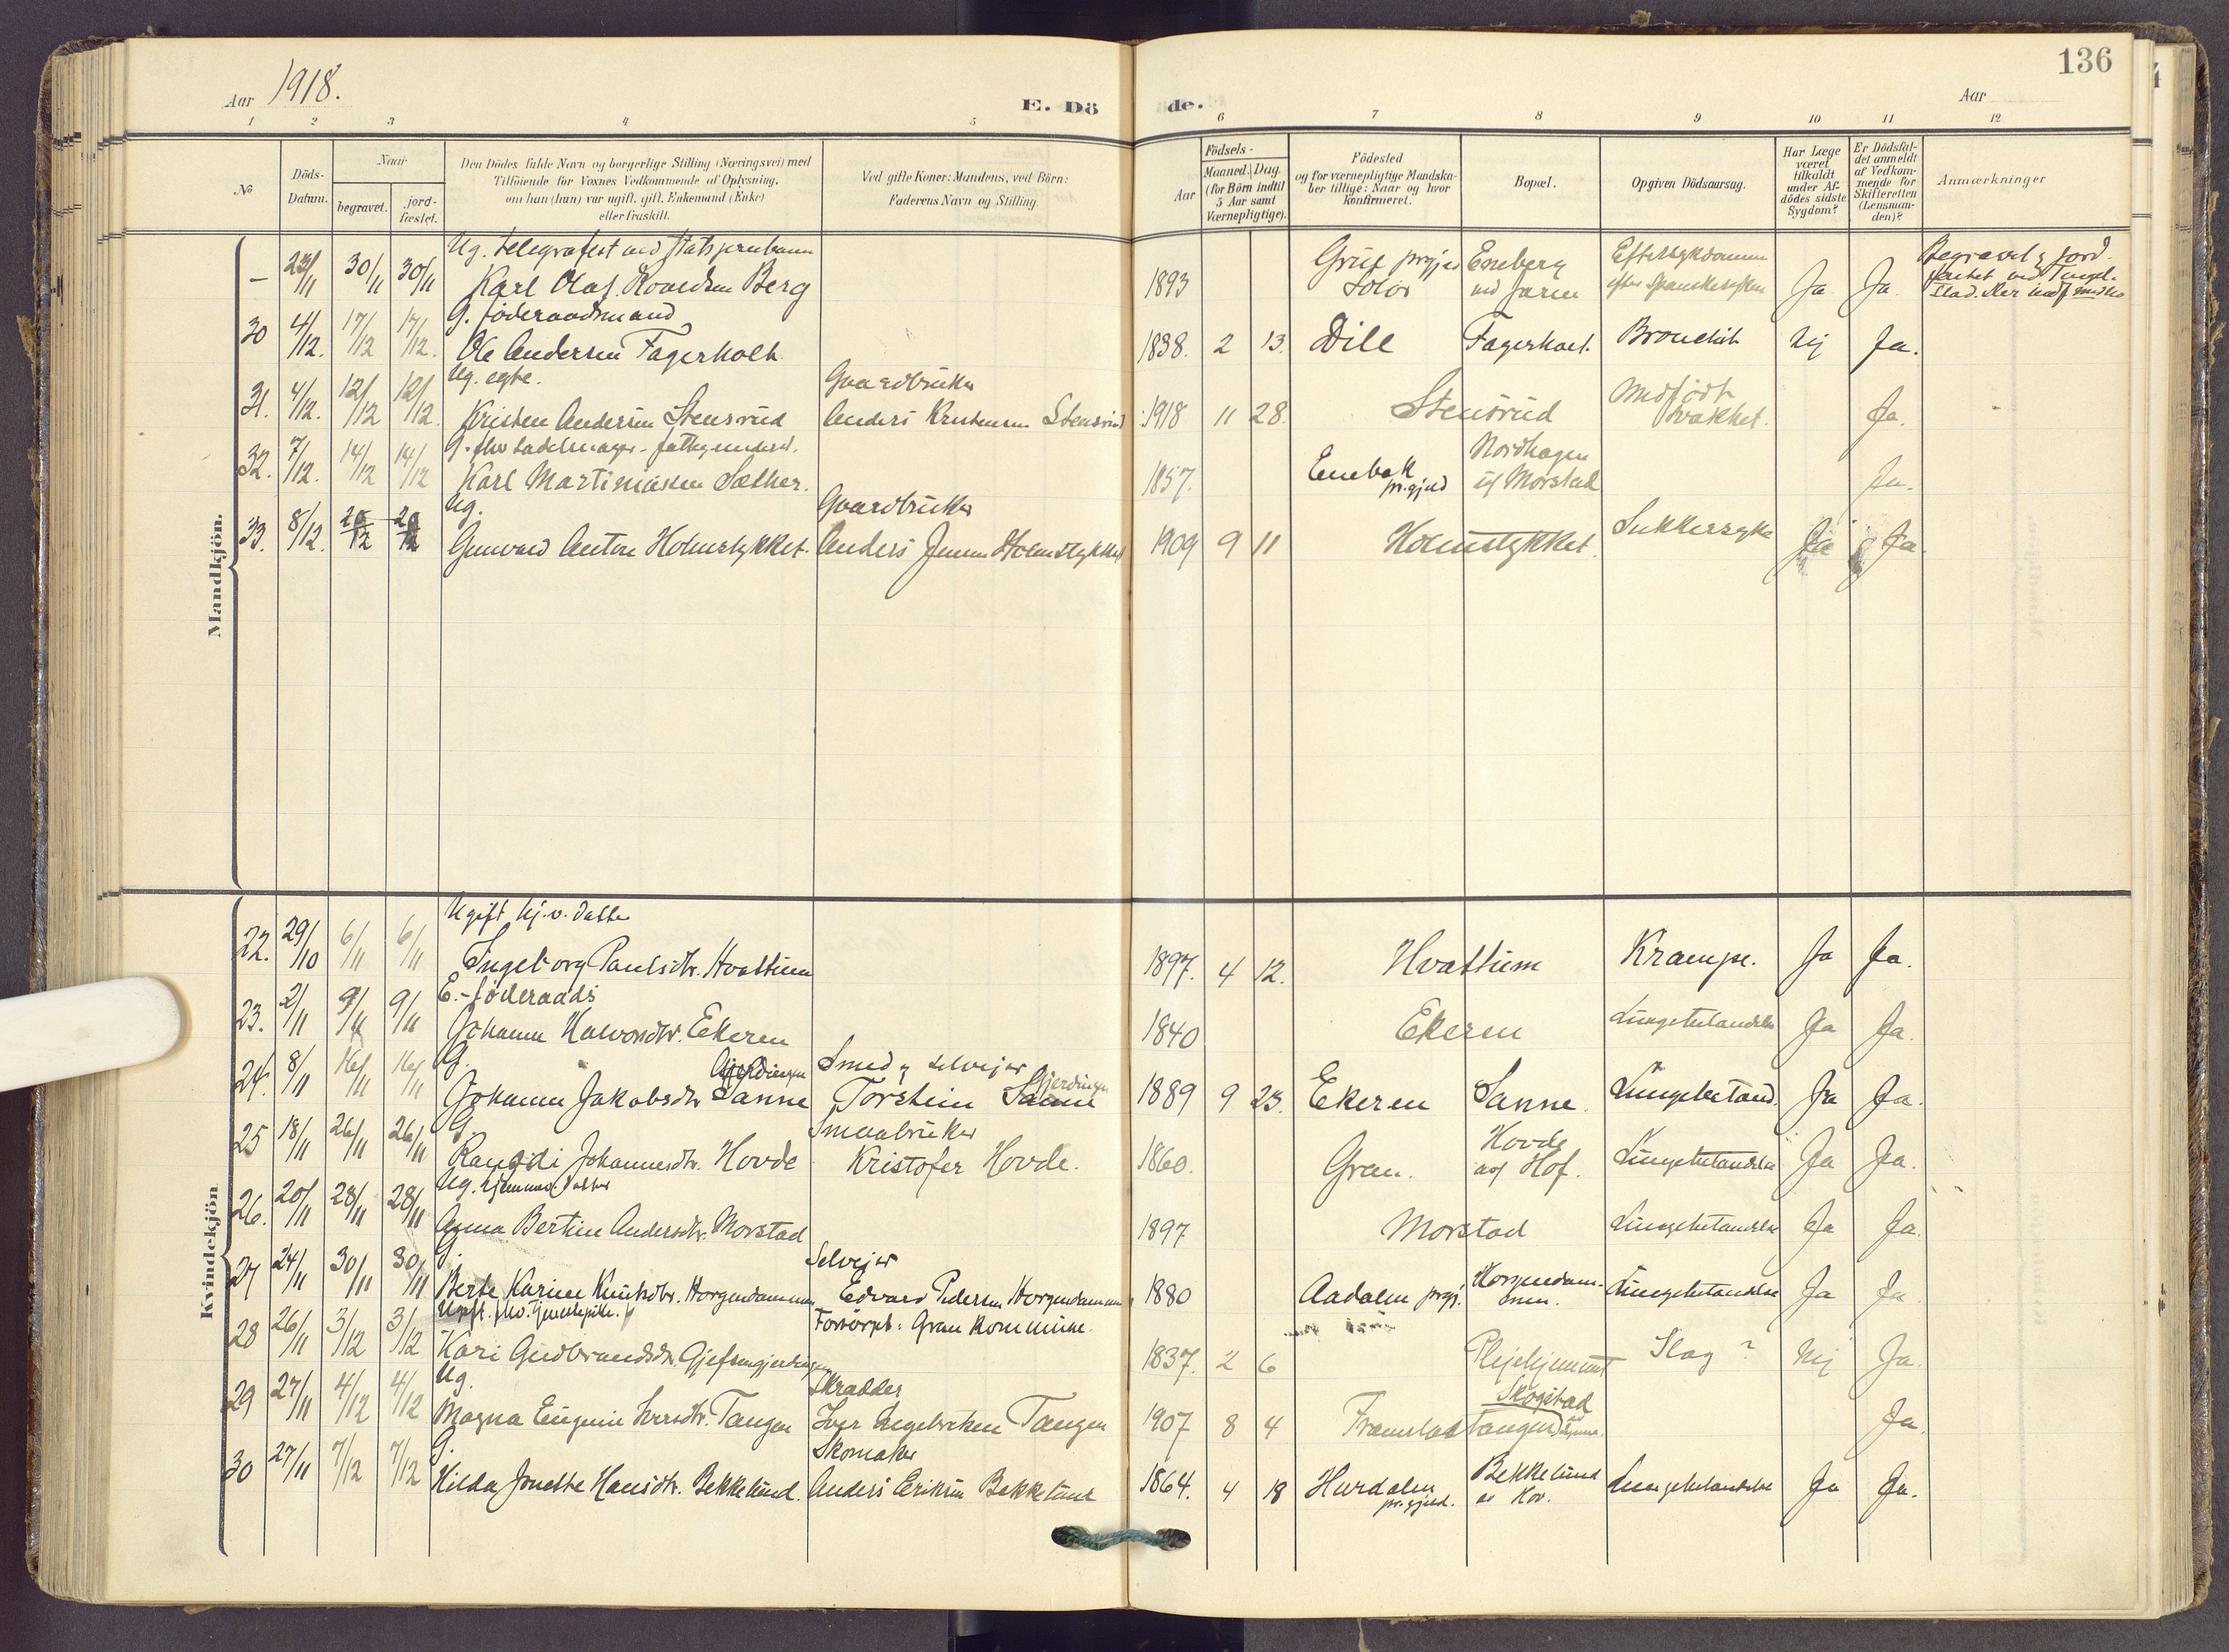 136
Aar 1918.
E. Dö de.
Aar
1 2 3 4 5 6 7 8 9 10 11 12
No
Döds-Datum.
Naar
begravet.
jord-fæstet.
Den Dödes fulde Navn og borgerlige Stilling (Næringsvei) med
Tilföiende for Voxnes Vedkommende af Oplysning,
om han (hun) var ugift, gift, Enkemand (Enke)
eller fraskilt.
Ved gifte Koner: Mandens, ved Börn:
Faderens Navn og Stilling.
Aar
Födsels-
Maaned. Dag.
(for Börn indtil
5 Aar samt
Værnepligtige).
Födested
og for værnepligtige Mandska-
ber tillige: Naar og hvor
konfirmeret.
Bopæl.
Opgiven Dödsaarsag.
Har Læge
været
tilkaldt
under Af-
dödes sidste
Sygdom?
Er Dödsfal-
det anmeldt
af Vedkom-
mende for
Skifteretten
(Lensman-
den)?
Anmærkninger
Mandkjön.
Ug. telegrafist ved Statsjernbanen
– 23/11 30/11 30/11 Karl Olaf Berg 1893 Grue prgjæld Solør Ja Ja
G. føderaadsmand
30 4/12. 17/12 17/12. Ole Andersen Fagerholt 1838. 2 13. Dill Fagerholt. Bronchit Nej Ja.
Ug. egte. Gaardbruker
31. 4/12. 12/12 12/12. Kristen Andersen Stensrud Anders Kristensen Stensrud 1918 11 28. Stensrud Medfødt svakhet. Ja.
32. 7/12. 14/12 14/12 Karl Martiniussen Sæther. 1857. Enebak pr.gjeld Nordhagen u/ Morstad Ja.
Ug. Gaardbruker
33. 8/12. 20/12 20/12 Gunvald Anton Holmstykket. Anders Jensen Holmstykket 1909 9 11 Holmstykket. Sukkersyke Ja Ja
Kvindekjön
Ugift hj.v. datter
22. 29/10 6/11 6/11 Ingeborg Paulsdtr. Hvattum 1897. 4 12. Hvattum Krampe. Ja Ja.
E.- føderaads
23. 2/11 9/11 9/11 Johanne Halvorsdtr. Ekeren 1840 Ekeren Lungebetændelse Ja Ja.
G. Gjerdingen Smed og selvejer Gjerdingen
24. 8/11 16/11 16/11 Johanne Jakobsdtr Sanne Torstein Sanne 1889 9 23. Ekeren Sanne. Lungebetænd. Ja Ja.
G. Smaabruker
25 18/11 26/11 26/11 Rangdi Johannesdtr. Hovde Kristofer Hovde. 1860. Gran. Hovde av Hof. Lungebetændelse Ja Ja.
Ug. hjemmev. datter
26. 20/11 28/11 28/11 Anna Bertine Andersdtr. Morstad 1897 Morstad Lungebetændelse Ja Ja.
G. Selvejer
27 24/11 30/11 30/11 Berte Karine Knutsdtr. Horgendammen Edvard Pedersen Horgendammen 1880 Aadalen prgj. Horgendammen. Lungebetændelse Ja Ja
Ugift. fhv. tjenestepike. Forsørget: Gran kommune.
28 26/11 3/12 3/12 Kari Gudbrandsdtr. Gjefsengjerdingen 1837. 2 6 Plejehjemmet Slag? Nej Ja.
Ug. Skrædder
29 27/11 4/12 4/12 Magna Eugenie Iversdtr. Tangen Iver Engebretsen Tangen 1907 8 4 Framstad Skogstad Tangen Ja.
G. Skomaker
30 27/11 7/12 7/12 Hilda Jonette Hansdtr. Bekkelund. Anders Eriksen Bekkelund 1864. 4 18 Hurdalen pr.gjeld. Bekkelund av Hov. Lungebetændelse Ja Ja.